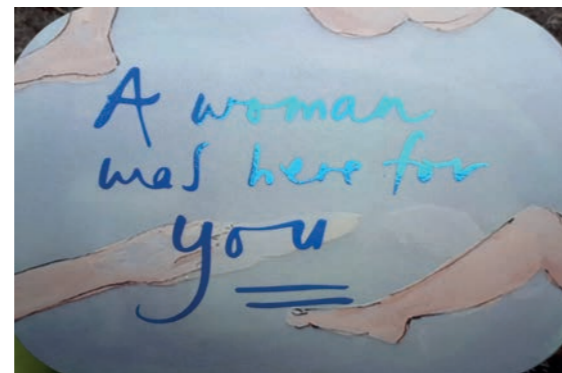 A woman
was here for
you